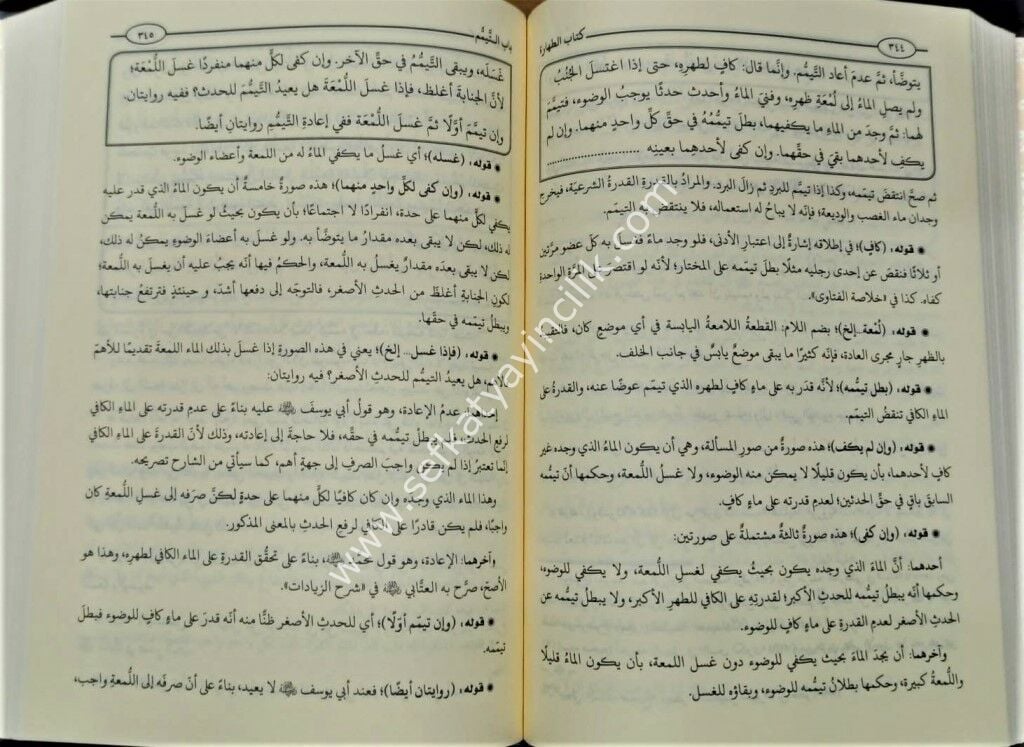 ٣٤٤
كتاب الطهارة
يتوضَّأ، ثمَّ عدمَ أعاد التَّيمُّم. وإنَّما قال: كافٍ لطهرِه، حتى إذا اغتسلَ الجُنُبُ
ولم يصل الماءُ إلى لُمْعَةِ ظهرِه، وفنيَ الماءُ وأحدث حدثًا يوجبُ الوضوء، فتيمَّم
لهما: ثمَّ وجدَ من الماءِ ما يكفيهما، بطلَ تيمُّمُه في حقِّ كلِّ واحدٍ منهما. وإن لم
يكفِ لأحدهما بقيَ في حقِّهما. وإن كفى لأحدِهما بعينِه ..............................
ثم صحَّ انتقضَ تيمّمه، وكذا إذا تيمَّم للبردِ ثم زالَ البرد. والمرادُ بالقدرةِ القدرةُ الشرعيّة، فيخرج
وجدان ماء الغصب والوديعة؛ فإنّه لا يباحُ له استعماله، فلا ينتقضُ به التيمّم.
● قوله، (كافٍ)؛ في إطلاقه إشارةٌ إلى اعتبار الأدنى، فلو وجد ماءً فغسلَ به كلّ عضو مرَّتين
أو ثلاثًا فنقصَ عن إحدى رجليه مثلًا بطلَ تيمّمه على المختار؛ لأنّه لو اقتصرَ على المرَّة الواحدة
كفاه. كذا في «خلاصة الفتاوى».
● قوله، (لُمْعة..إلخ)؛ بضم اللام: القطعةُ اللامعةُ اليابسة في أيّ موضعٍ كان،
بالظهر جارٍ مجرى العادة، فإنّه كثيرًا ما يبقى موضعٌ يابسٌ في جانب الخلف.
● قوله، (بطل تيمّمه)؛ لأنَّه قدرَ به على ماءٍ كافٍ لطهره الذي تيمّم عوضًا عنه، والقدرةُ على
الماءِ الكافي تنقضُ التيمّم.
● قوله، (وإن لم يكف)؛ هذه صورةٌ من صورِ المسألة، وهي أن يكون الماءُ الذي وجده غير
كافٍ لأحدهما، بأن يكون قليلًا لا يمكن منه الوضوء، ولا غسلُ اللُّمعة، وحكمها أنّ تيمّمه
السابقَ باقٍ في حقّ الحدثين؛ لعدم قدرته على ماءٍ كافٍ.
● قوله، (وإن كفى)؛ هذه صورةٌ ثالثةٌ مشتملةٌ على صورتين:
أحدهما: أنّ الماءَ الذي وجده يكون بحيثُ يكفي لغسلِ اللُّمعة، ولا يكفي للوضوء،
وحكمها أنّه يبطلُ تيمّمه للحدثِ الأكبر؛ لقدرتهِ على الكافي للطهرِ الأكبر، ولا يبطلُ تيمّمه عن
الحدثِ الأصغر لعدمِ القدرةِ على ماءٍ كافٍ للوضوء.
وآخرهما: أن يجدَ الماءَ بحيث يكفي للوضوء دون غسل اللمعة، بأن يكون الماءُ قليلًا
واللُّمعة كبيرة، وحكمها بطلان تيمّمه للوضوء، وبقاؤه للغسل.
باب التَّيمُّم
٣٤٥
غَسَلَه، ويبقى التَّيمُّمُ في حقِّ الآخر. وإن كفى لكلِّ منهما منفردًا غسل اللُّمْعَة؛
لأنَّ الجنابةَ أغلظ، فإذا غسلَ اللُّمْعَةَ هل يعيدُ التَّيمُّمَ للحدث؟ ففيه روايتان.
وإن تيمَّم أوَّلًا ثمَّ غسل اللُّمْعةَ ففي إعادةِ التَّيمُّمِ روايتانِ أيضًا.
● قوله، (غسله)؛ أي غسلُ ما يكفي الماءُ له من اللمعة وأعضاء الوضوء.
● قوله، (وإن كفى لكلّ واحدٍ منهما)؛ هذه صورةٌ خامسةٌ أن يكون الماءُ الذي قدر عليه
يكفي لكلٍّ منهما على حدة، انفرادًا لا اجتماعًا؛ بأن يكون بحيثُ لو غسلَ به اللُّمعة يمكن
له ذلك، لكن لا يبقى بعده مقدارُ ما يتوضّأ به. ولو غسل به أعضاءَ الوضوءِ يمكنُ له ذلك،
لكن لا يبقى بعدَه مقدارٌ يغسلُ به اللُّمعة، والحكمُ فيها أنّه يجبُ عليه أن يغسلَ به اللُّمعة؛
لكونِ الجنابةِ أغلظَ من الحدثِ الأصغر، فالتوجّه إلى دفعها أشدّ، و حينئذٍ فترتفعُ جنابتها،
ويبطلُ تيمّمه في حقّها.
● قوله، (فإذا غسل... إلخ)؛ يعني في هذه الصورةِ إذا غسلَ بذلك الماءَ اللمعةَ تقديمًا للأهمّ
هل يعيدُ التيمّم للحدثِ الأصغر؟ فيه روايتان:
إحداهما: عدمُ الإعادة، وهو قولُ أبي يوسفَ ﷺ عليه بناءً على عدمِ قدرته على الماءِ الكافي
لرفعِ الحدث، فلم يبطلْ تيمُّمه في حقّه، فلا حاجةَ إلى إعادته، وذلك لأنّ القدرةَ على الماءِ الكافي
إنّما تعتبرُ إذا لم يكن واجبَ الصرفِ إلى جهةٍ أهم، كما سيأتي من الشارحِ تصريحه.
وهذا الماءُ الذي وجدَه وإن كان كافيًا لكلِّ منهما على حدةٍ لكنَّ صرفَه إلى غسلِ اللُّمعةِ كان
واجبًا، فلم يكن قادرًا على الكافي لرفعِ الحدثِ بالمعنى المذكور.
وآخرهما: الإعادة، وهو قول محمّدٍ، بناءً على تحقّقِ القدرةِ على الماءِ الكافي لطهرِه، وهذا هو
الأصحّ، صرَّح به العتّابي ﷺ في «شرح الزيادات».
● قوله، (وإن تيمّم أوّلًا)؛ أي للحدثِ الأصغر ظنًّا منه أنّه قدرَ على ماءٍ كافٍ للوضوء فبطلَ
تيمّمه.
● قوله، (روايتان أيضًا)؛ فعند أبي يوسفَ ﷺ لا يعيد، بناءً على أنّ صرفَه إلى اللُّمعةِ واجب،
www.sefkatyayincilik.com